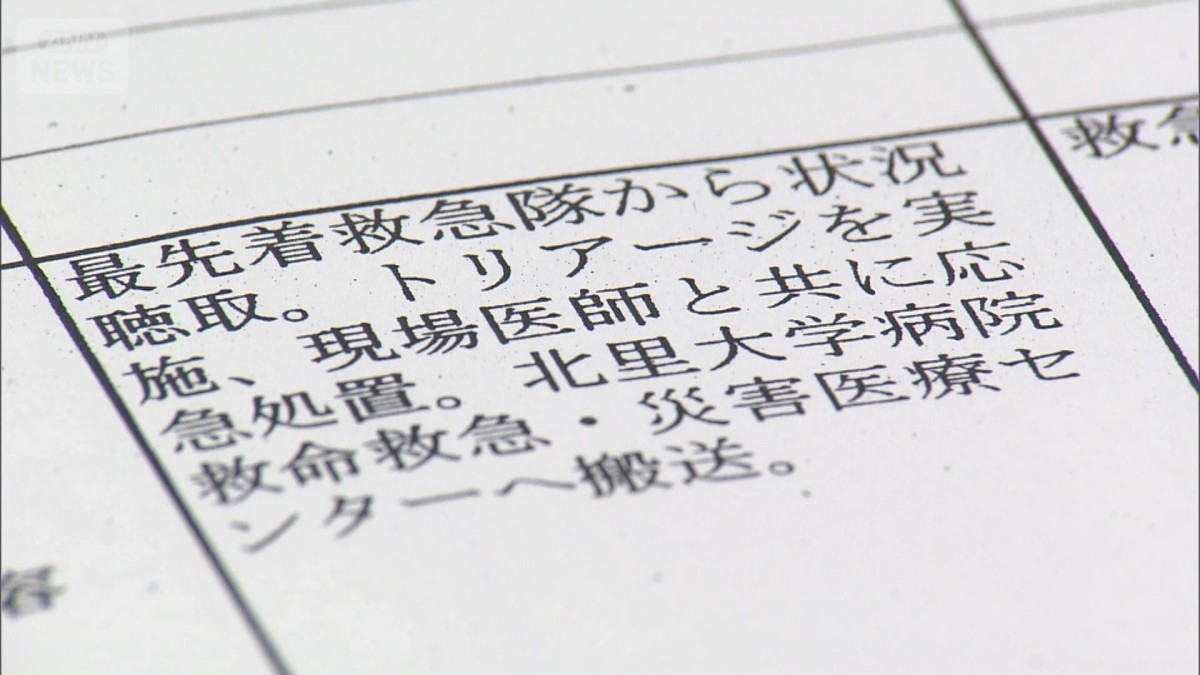 ANN
NEWS
救急
最先着救急隊から状況
聴取。トリアージを実
施、現場医師と共に応
急処置。北里大学病院
救命救急・災害医療セ
ンターへ搬送。
容